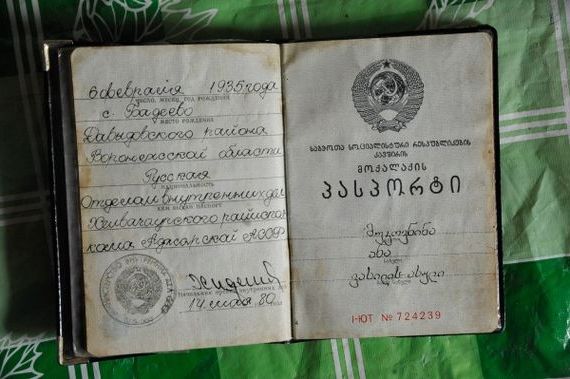 6 февраля 1935 года
число, месяц, год рождения
с. Бадеево
место рождения
Давыдовского района
Воронежской области
Русская
национальность
Отделом внутренних дел
кем выдан паспорт
Хелвачаурского райиспол
кома Аджарской АССР
14 мая 80
საბჭოთა სოციალისტური რესპუბლიკების
კავშირის
მოქალაქის
პასპორტი
ანა
სახელი
ვასილის ასული
I-ЮТ № 724239